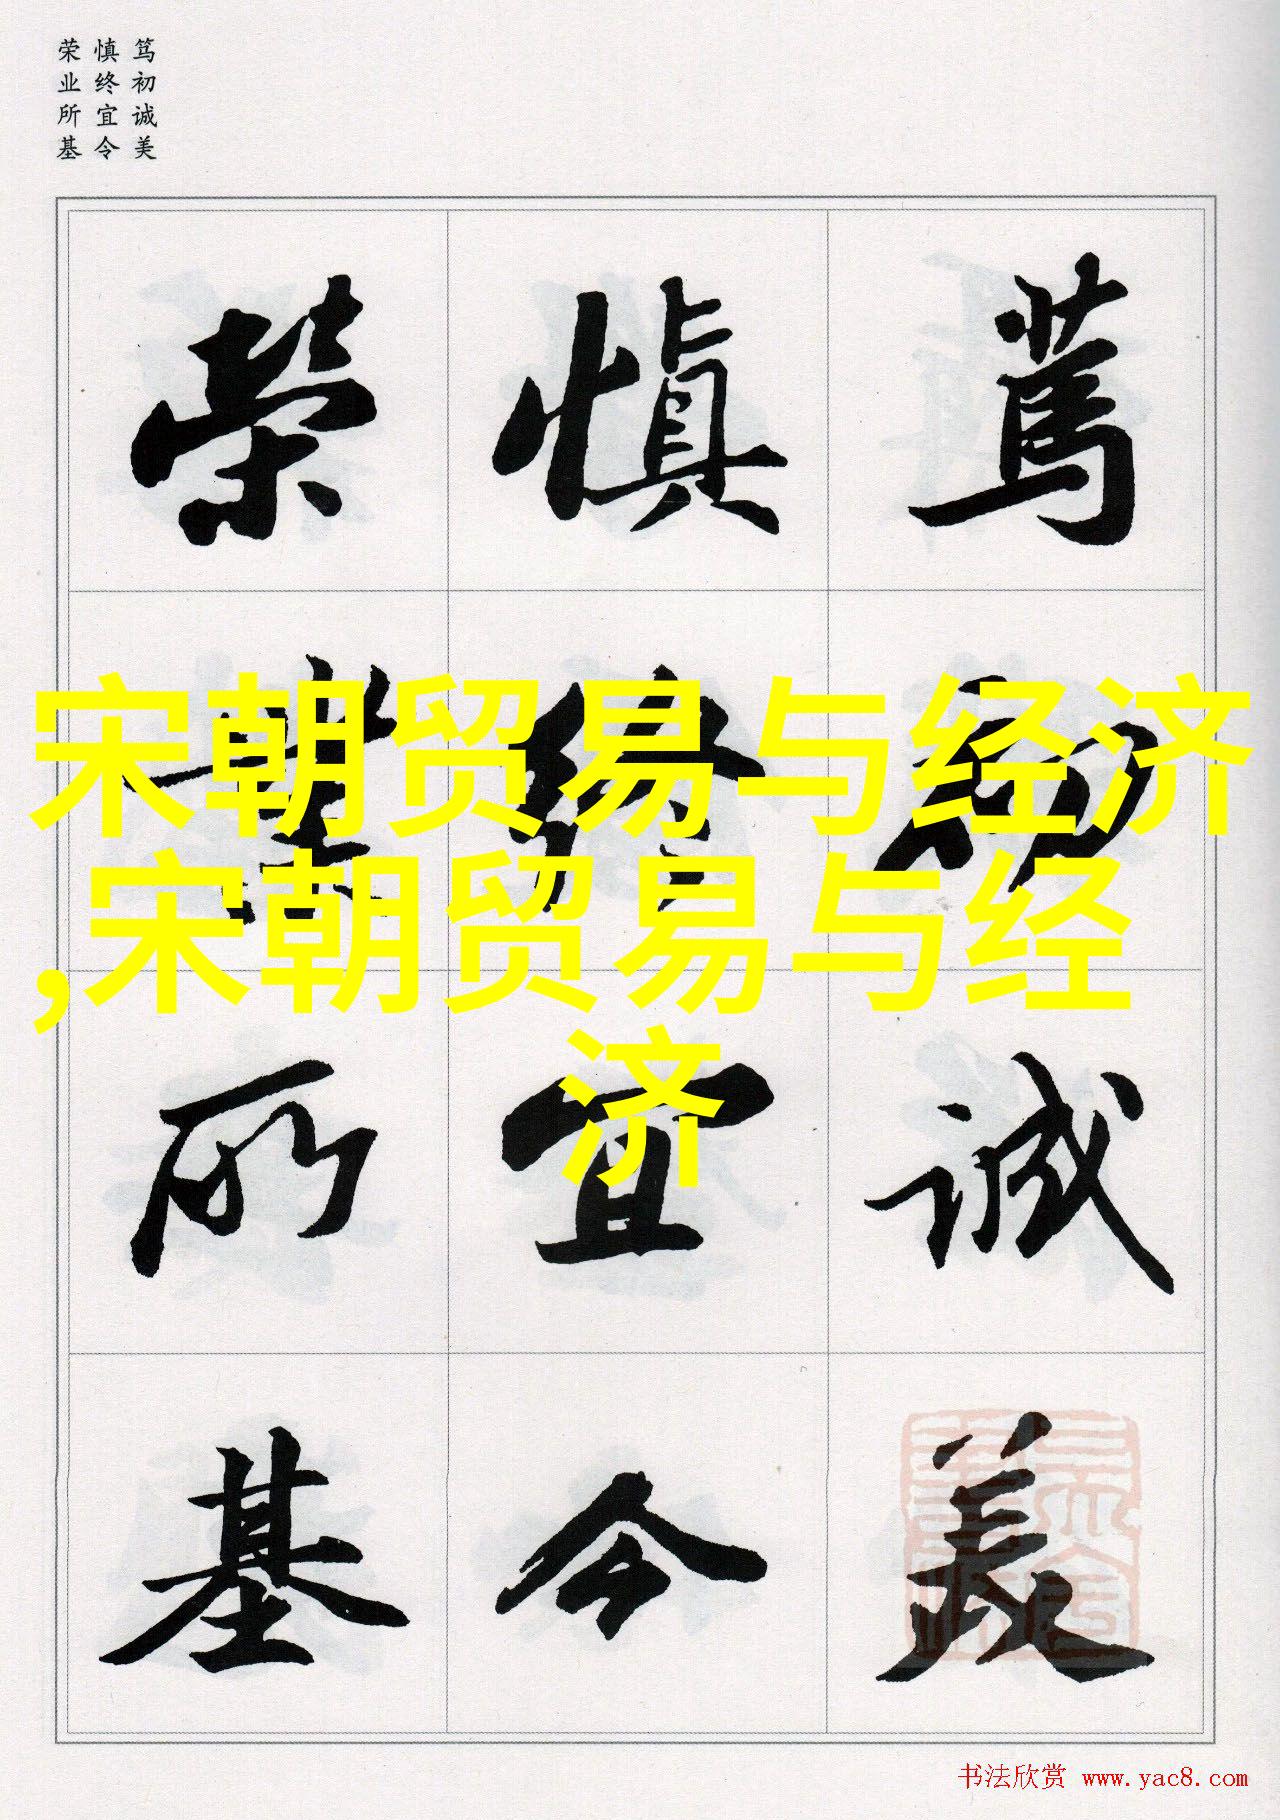 笃初诚美
慎终宜令
荣业所基
篤初誠美
慎終宜令
榮業所基
宋朝贸易与经济
,宋朝贸易与经
济
书法欣赏 www.yac8.com